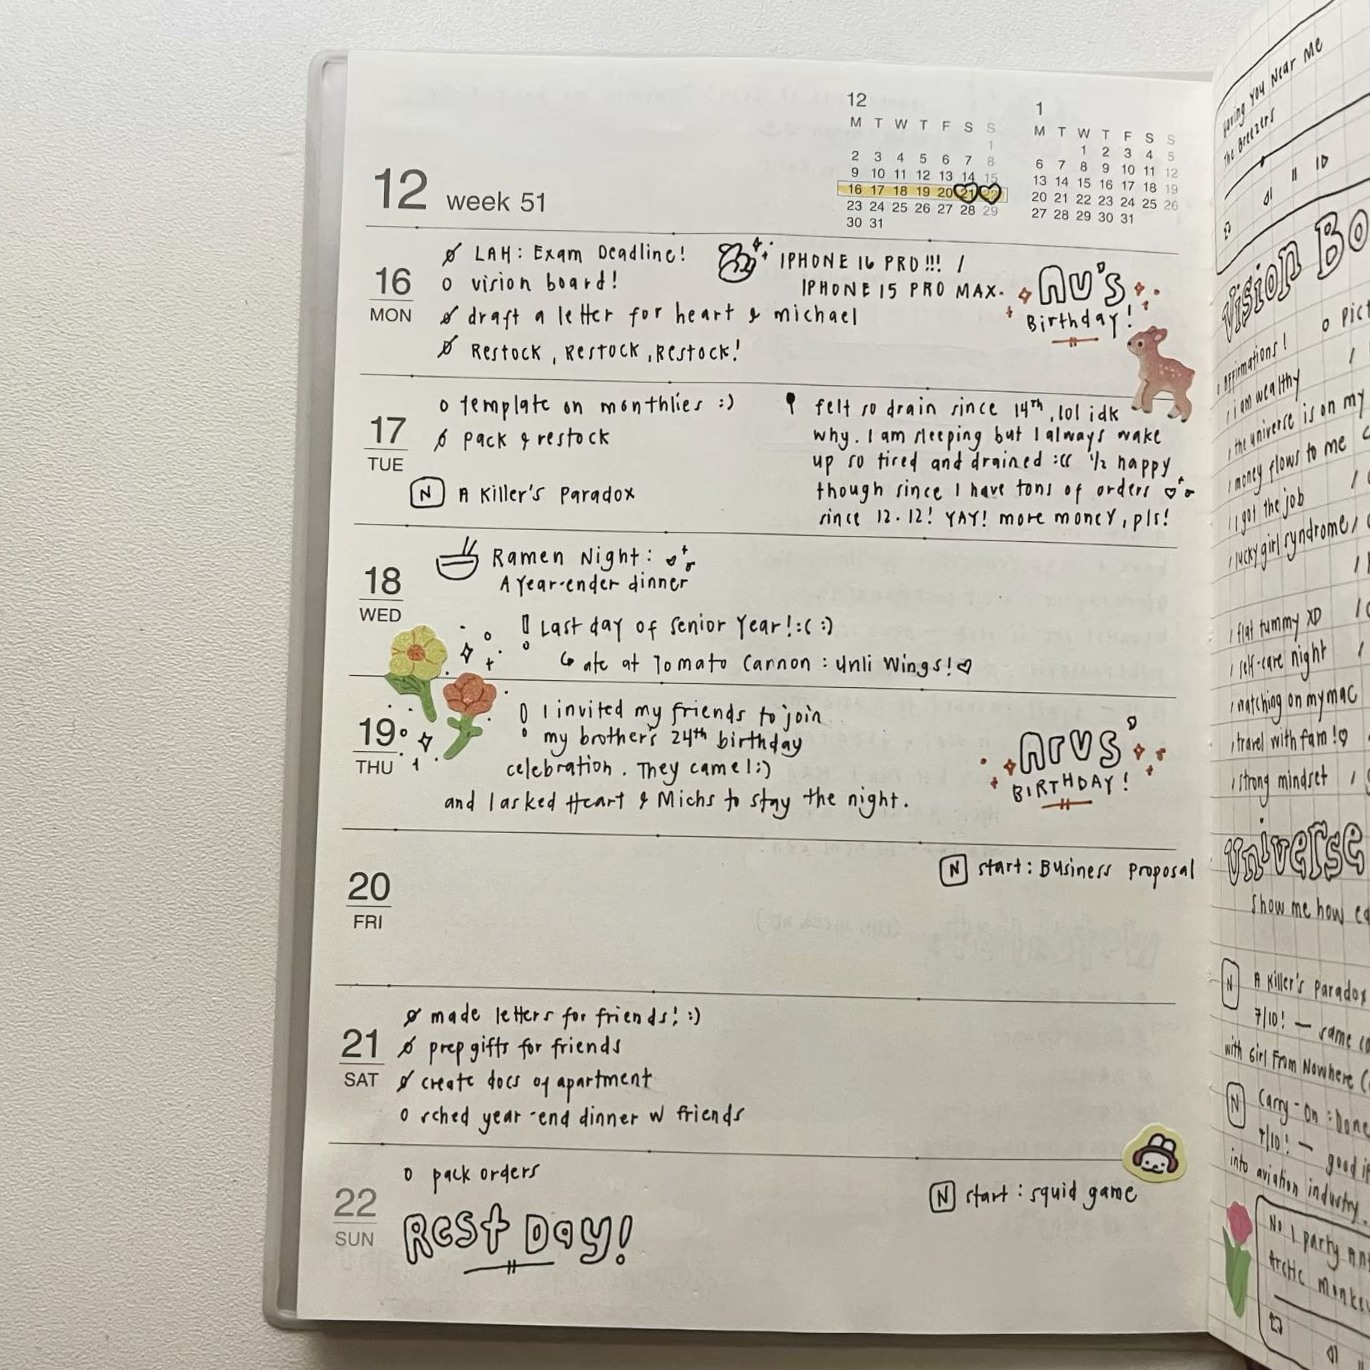 12 week 51
12
M T W T F S S
1
2 3 4 5 6 7 8
9 10 11 12 13 14 15
16 17 18 19 20 21 22
23 24 25 26 27 28 29
30 31
1
M T W T F S S
1 2 3 4 5
6 7 8 9 10 11 12
13 14 15 16 17 18 19
20 21 22 23 24 25 26
27 28 29 30 31
16
MON
LAH: Exam Deadline!
vision board!
draft a letter for heart & michael
Restock, Restock, Restock!
IPHONE 16 PRO!!! /
IPHONE 15 PRO MAX.
Au's
Birthday!
17
TUE
template on monthlies :)
pack & restock
N A Killer's Paradox
felt so drain since 14th, lol idk
why. I am sleeping but I always wake
up so tired and drained :(( 1/2 happy
though since I have tons of orders
since 12.12! YAY! more money, pls!
18
WED
Ramen Night:
A Year-ender dinner
Last day of Senior Year! :( :)
ate at Tomato Cannon: Unli Wings!
19
THU
I invited my friends to join
my brother's 24th birthday
celebration. They came! :)
and I asked Heart & Michs to stay the night.
Arvs'
BIRTHDAY!
20
FRI
N start: Business Proposal
21
SAT
made letters for friends! :)
prep gifts for friends
create docs of apartment
sched year-end dinner w friends
22
SUN
pack orders
Rest Day!
N start: squid game
Having You Near Me
The Breezers
Vision Bo
affirmations!
I am wealthy
the universe is on my
money flows to me
I got the job
lucky girl syndrome
flat tummy XD
self-care night
watching on my mac
travel with fam!
strong mindset
Universe
Show me how
N A Killer's Paradox
7/10! — same
with Girl From Nowhere
N Carry-on: Done
7/10! — good
into aviation industry.
No. 1 party
Arctic Monkeys